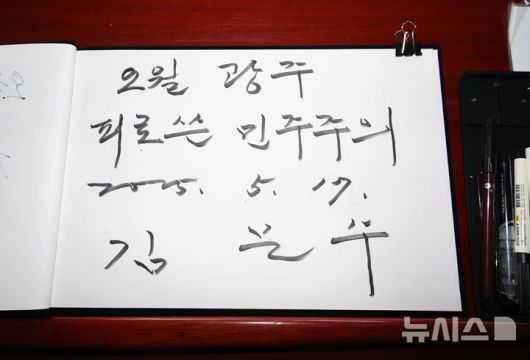 오월 광주
피로쓴 민주주의
2025. 5. 17.
김 문 수
뉴시스